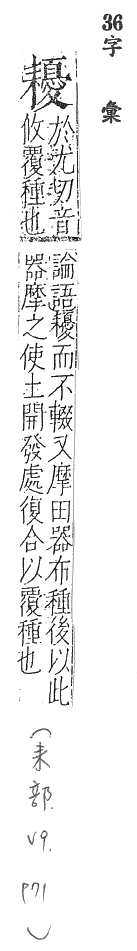 36字 彙
耰
於尤切音
攸覆種也
論語耰而不輟又摩田器布種後以此
器摩之使土開發處復合以覆種也
(耒部 V9. P71)